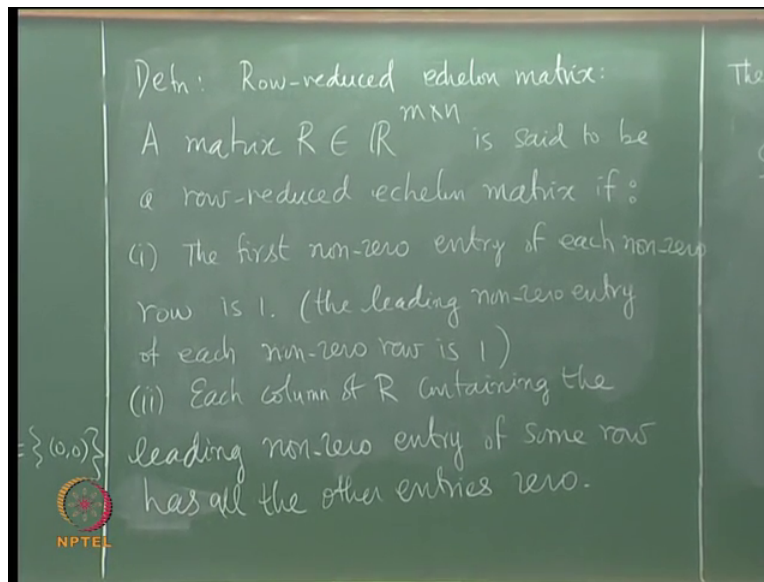 Defn: Row-reduced echelon matrix:
A matrix R ∈ ℝ^{m×n} is said to be
a row-reduced echelon matrix if:
(i) The first non-zero entry of each non-zero
row is 1. (the leading non-zero entry
of each non-zero row is 1)
(ii) Each column of R containing the
={(0,0)}
leading non-zero entry of some row
has all the other entries zero.
The
NPTEL